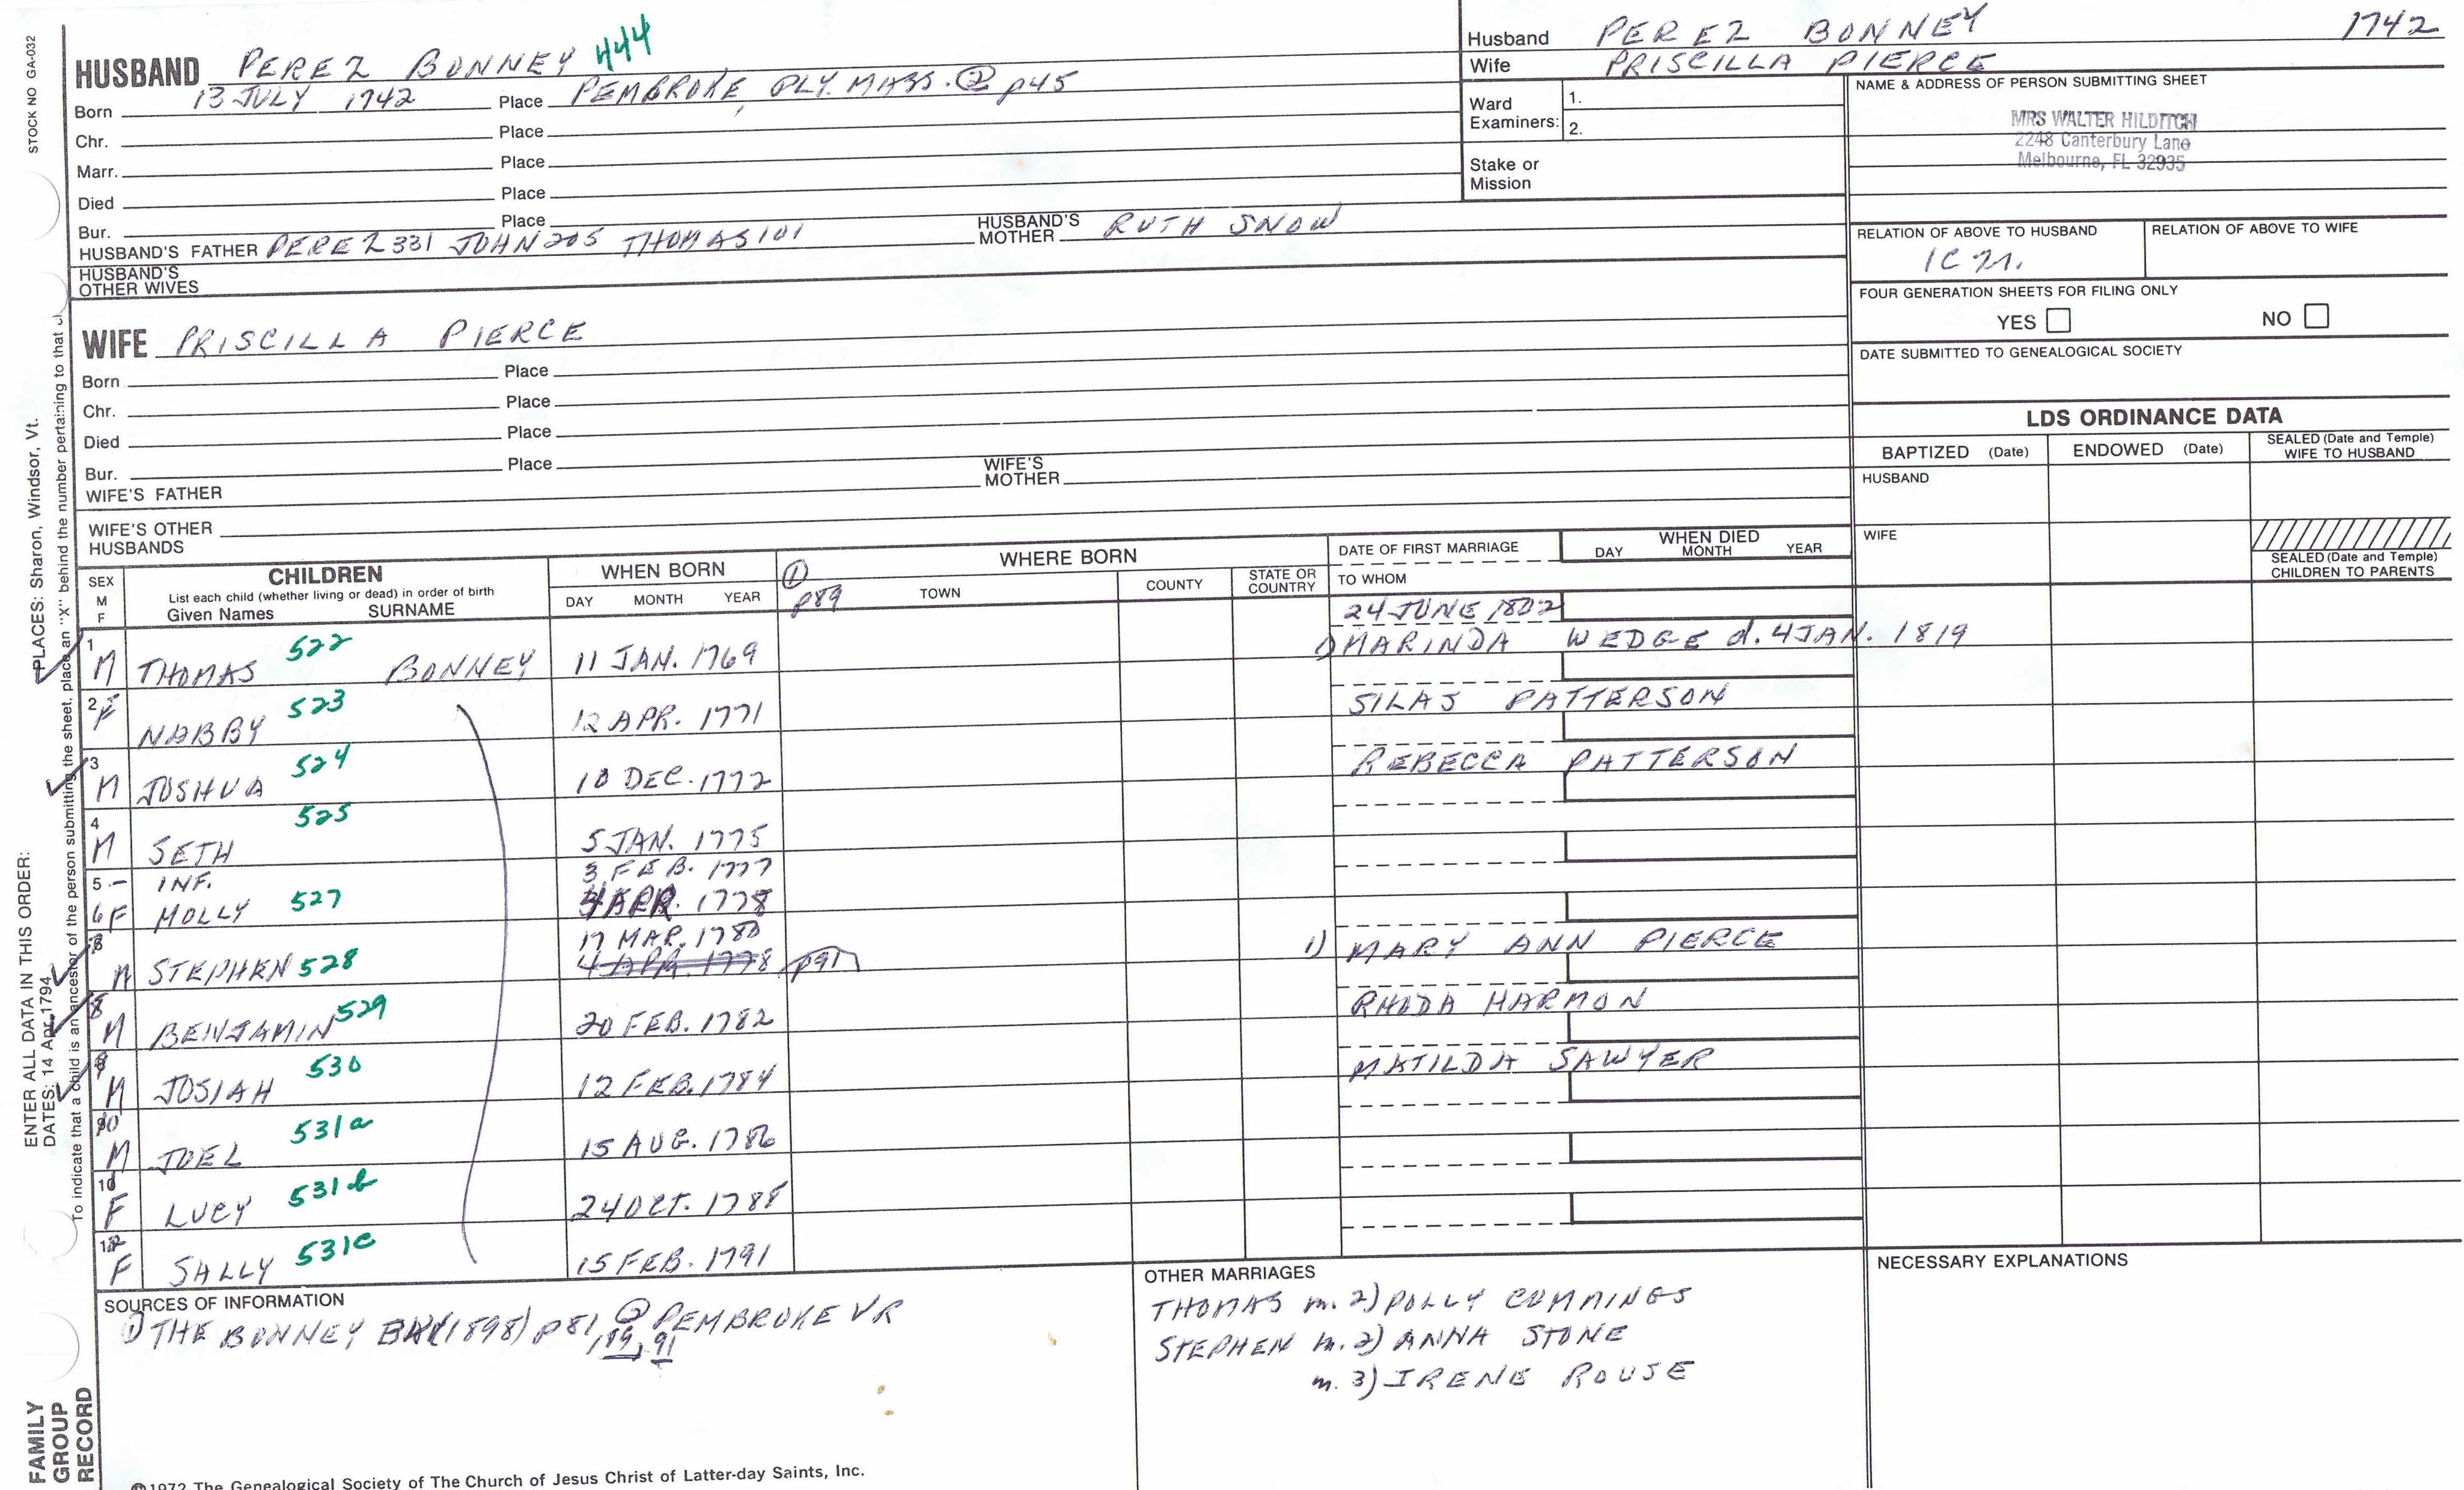 STOCK NO GA-032
HUSBAND PEREZ BONNEY 444
Born 13 JULY 1742 Place PEMBROKE, PLY. MASS. ② p45
Chr. Place
Marr. Place
Died Place
Bur. Place
HUSBAND'S FATHER PEREZ 331 JOHN 205 THOMAS 101 HUSBAND'S MOTHER RUTH SNOW
HUSBAND'S OTHER WIVES
Husband PEREZ BONNEY 1742
Wife PRISCILLA PIERCE
Ward Examiners: 1.
2.
Stake or Mission
NAME & ADDRESS OF PERSON SUBMITTING SHEET
MRS WALTER HILDITCH
2248 Canterbury Lane
Melbourne, FL 32935
RELATION OF ABOVE TO HUSBAND
RELATION OF ABOVE TO WIFE
FOUR GENERATION SHEETS FOR FILING ONLY
YES NO
DATE SUBMITTED TO GENEALOGICAL SOCIETY
WIFE PRISCILLA PIERCE
Born Place
Chr. Place
Died Place
Bur. Place
WIFE'S FATHER WIFE'S MOTHER
WIFE'S OTHER HUSBANDS
LDS ORDINANCE DATA
BAPTIZED (Date) ENDOWED (Date) SEALED (Date and Temple) WIFE TO HUSBAND
HUSBAND
WIFE
SEALED (Date and Temple) CHILDREN TO PARENTS
SEX M F
CHILDREN
List each child (whether living or dead) in order of birth
Given Names SURNAME
WHEN BORN
DAY MONTH YEAR
① p89
WHERE BORN
TOWN COUNTY STATE OR COUNTRY
DATE OF FIRST MARRIAGE
TO WHOM
WHEN DIED
DAY MONTH YEAR
24 JUNE 1802
1 M THOMAS 522 BONNEY 11 JAN. 1769 1) MARINDA WEDGE d. 4 JAN. 1819
2 F NABBY 523 12 APR. 1771 SILAS PATTERSON
3 M JOSHUA 524 10 DEC. 1772 REBECCA PATTERSON
4 M SETH 525 5 JAN. 1775
5 - INF. 3 FEB. 1777
6 F MOLLY 527 4 APR. 1778
17 MAR. 1780
M STEPHEN 528 4 APR. 1778 p91 1) MARY ANN PIERCE
8 M BENJAMIN 529 20 FEB. 1782 RHODA HARMON
9 M JOSIAH 530 12 FEB. 1784 MATILDA SAWYER
10 M JOEL 531a 15 AUG. 1786
F LUCY 531b 24 OCT. 1788
12 F SALLY 531c 15 FEB. 1791
SOURCES OF INFORMATION
1) THE BONNEY (1898) p81, 89, 91 ② PEMBROKE VR
OTHER MARRIAGES
THOMAS m. 2) POLLY CUMMINGS
STEPHEN m. 2) ANNA STONE
m. 3) IRENE ROUSE
NECESSARY EXPLANATIONS
ENTER ALL DATA IN THIS ORDER:
PLACES: Sharon, Windsor, Vt.
DATES: 14 Apr 1794
To indicate that a child is an ancestor of the person submitting the sheet, place an "X" behind the number pertaining to that
FAMILY GROUP RECORD
©1972 The Genealogical Society of The Church of Jesus Christ of Latter-day Saints, Inc.